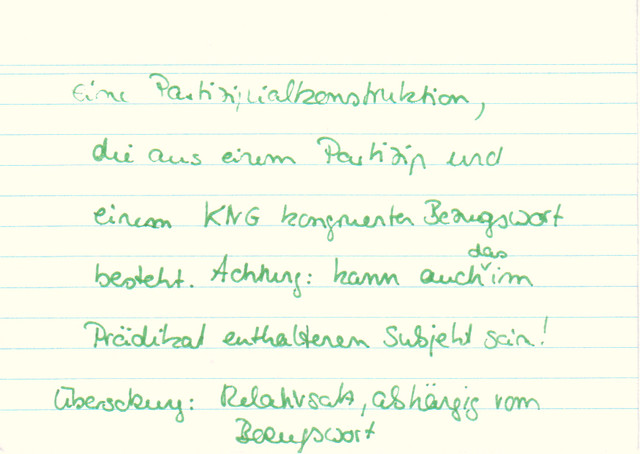 Eine Partizipialkonstruktion,
die aus einem Partizip und
einem KNG kongruenten Bezugswort
besteht. Achtung: kann auch das im
Prädikat enthaltenen Subjekt sein!
Übersetzung: Relativsatz, abhängig vom
Bezugswort